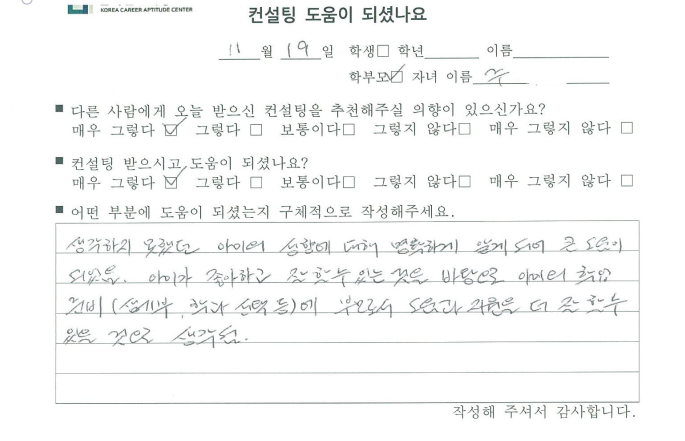 KOREA CAREER APTITUDE CENTER
컨설팅 도움이 되셨나요
11 월 19 일 학생□ 학년 이름
학부모☑ 자녀 이름
■ 다른 사람에게 오늘 받으신 컨설팅을 추천해주실 의향이 있으신가요?
매우 그렇다 ☑ 그렇다 □ 보통이다□ 그렇지 않다□ 매우 그렇지 않다 □
■ 컨설팅 받으시고 도움이 되셨나요?
매우 그렇다 ☑ 그렇다 □ 보통이다□ 그렇지 않다□ 매우 그렇지 않다 □
■ 어떤 부분에 도움이 되셨는지 구체적으로 작성해주세요.
생각하지 못했던 아이의 성향에 대해 명확하게 알게 되어 큰 도움이
되었음. 아이가 좋아하고 잘 할 수 있는 것을 바탕으로 아이의 학업
준비 (생기부, 학과 선택 등)에 부모로서 도움과 지원을 더 잘 할 수
있을 것으로 생각됨.
작성해 주셔서 감사합니다.